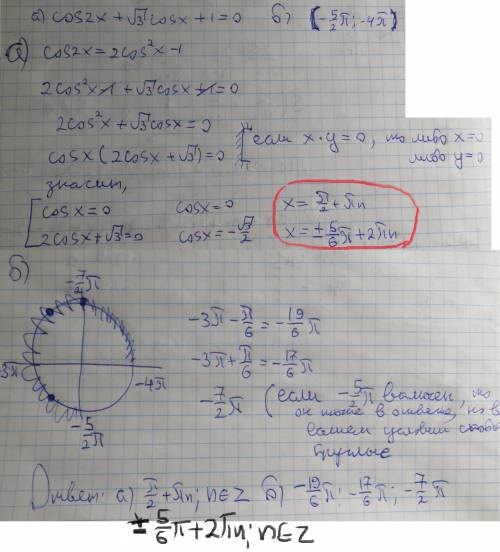 а) cos2x + √3 cosx + 1 = 0   б) (-5/2π; -4π)
а) cos2x = 2cos²x - 1
2cos²x - 1 + √3 cosx + 1 = 0
2cos²x + √3 cosx = 0
cosx (2cosx + √3) = 0
если x · y = 0, то либо x = 0
либо y = 0
значит,
cosx = 0   cosx = 0   x = π/2 + πn
2cosx + √3 = 0   cosx = -√3/2   x = ± 5/6π + 2πn
б)
-7/2π
-3π
-4π
-5/2π
-3π - π/6 = -19/6π
-3π + π/6 = -17/6π
-7/2π
(если -5/2π включен, то
он тоже в ответе, но в
вашем условии скобки
круглые
Ответ: а) π/2 + πn; n∈Z   б) -19/6π; -17/6π; -7/2π
± 5/6π + 2πn; n∈Z